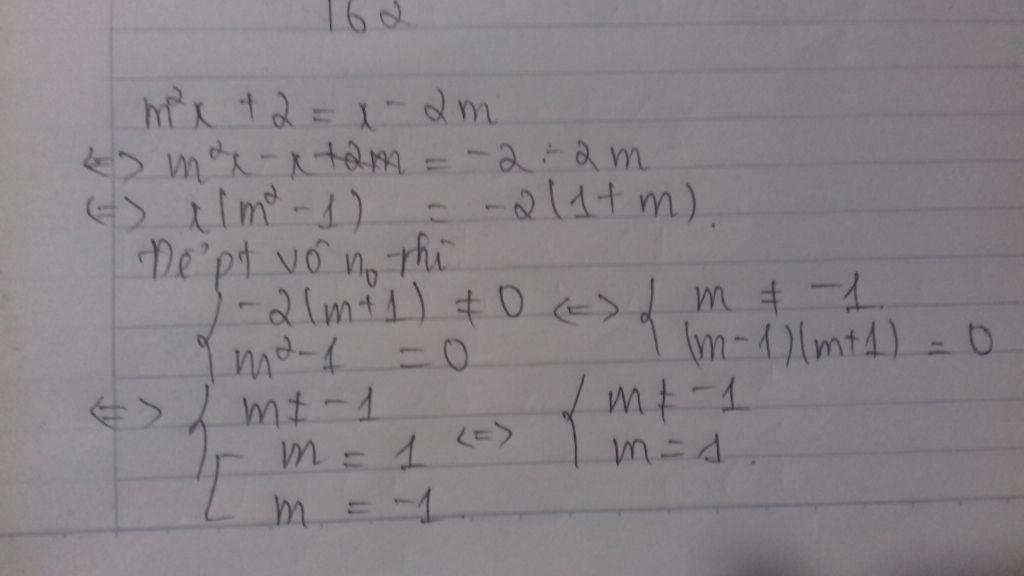 162
m²x + 2 = x - 2m
<=> m²x - x = -2 - 2m
<=> x(m² - 1) = -2(1 + m).
Để pt vô n₀ thì
{ -2(m+1) ≠ 0 <=> { m ≠ -1
m² - 1 = 0 (m-1)(m+1) = 0
<=> { m ≠ -1 { m ≠ -1
[ m = 1 <=> m = 1.
m = -1.